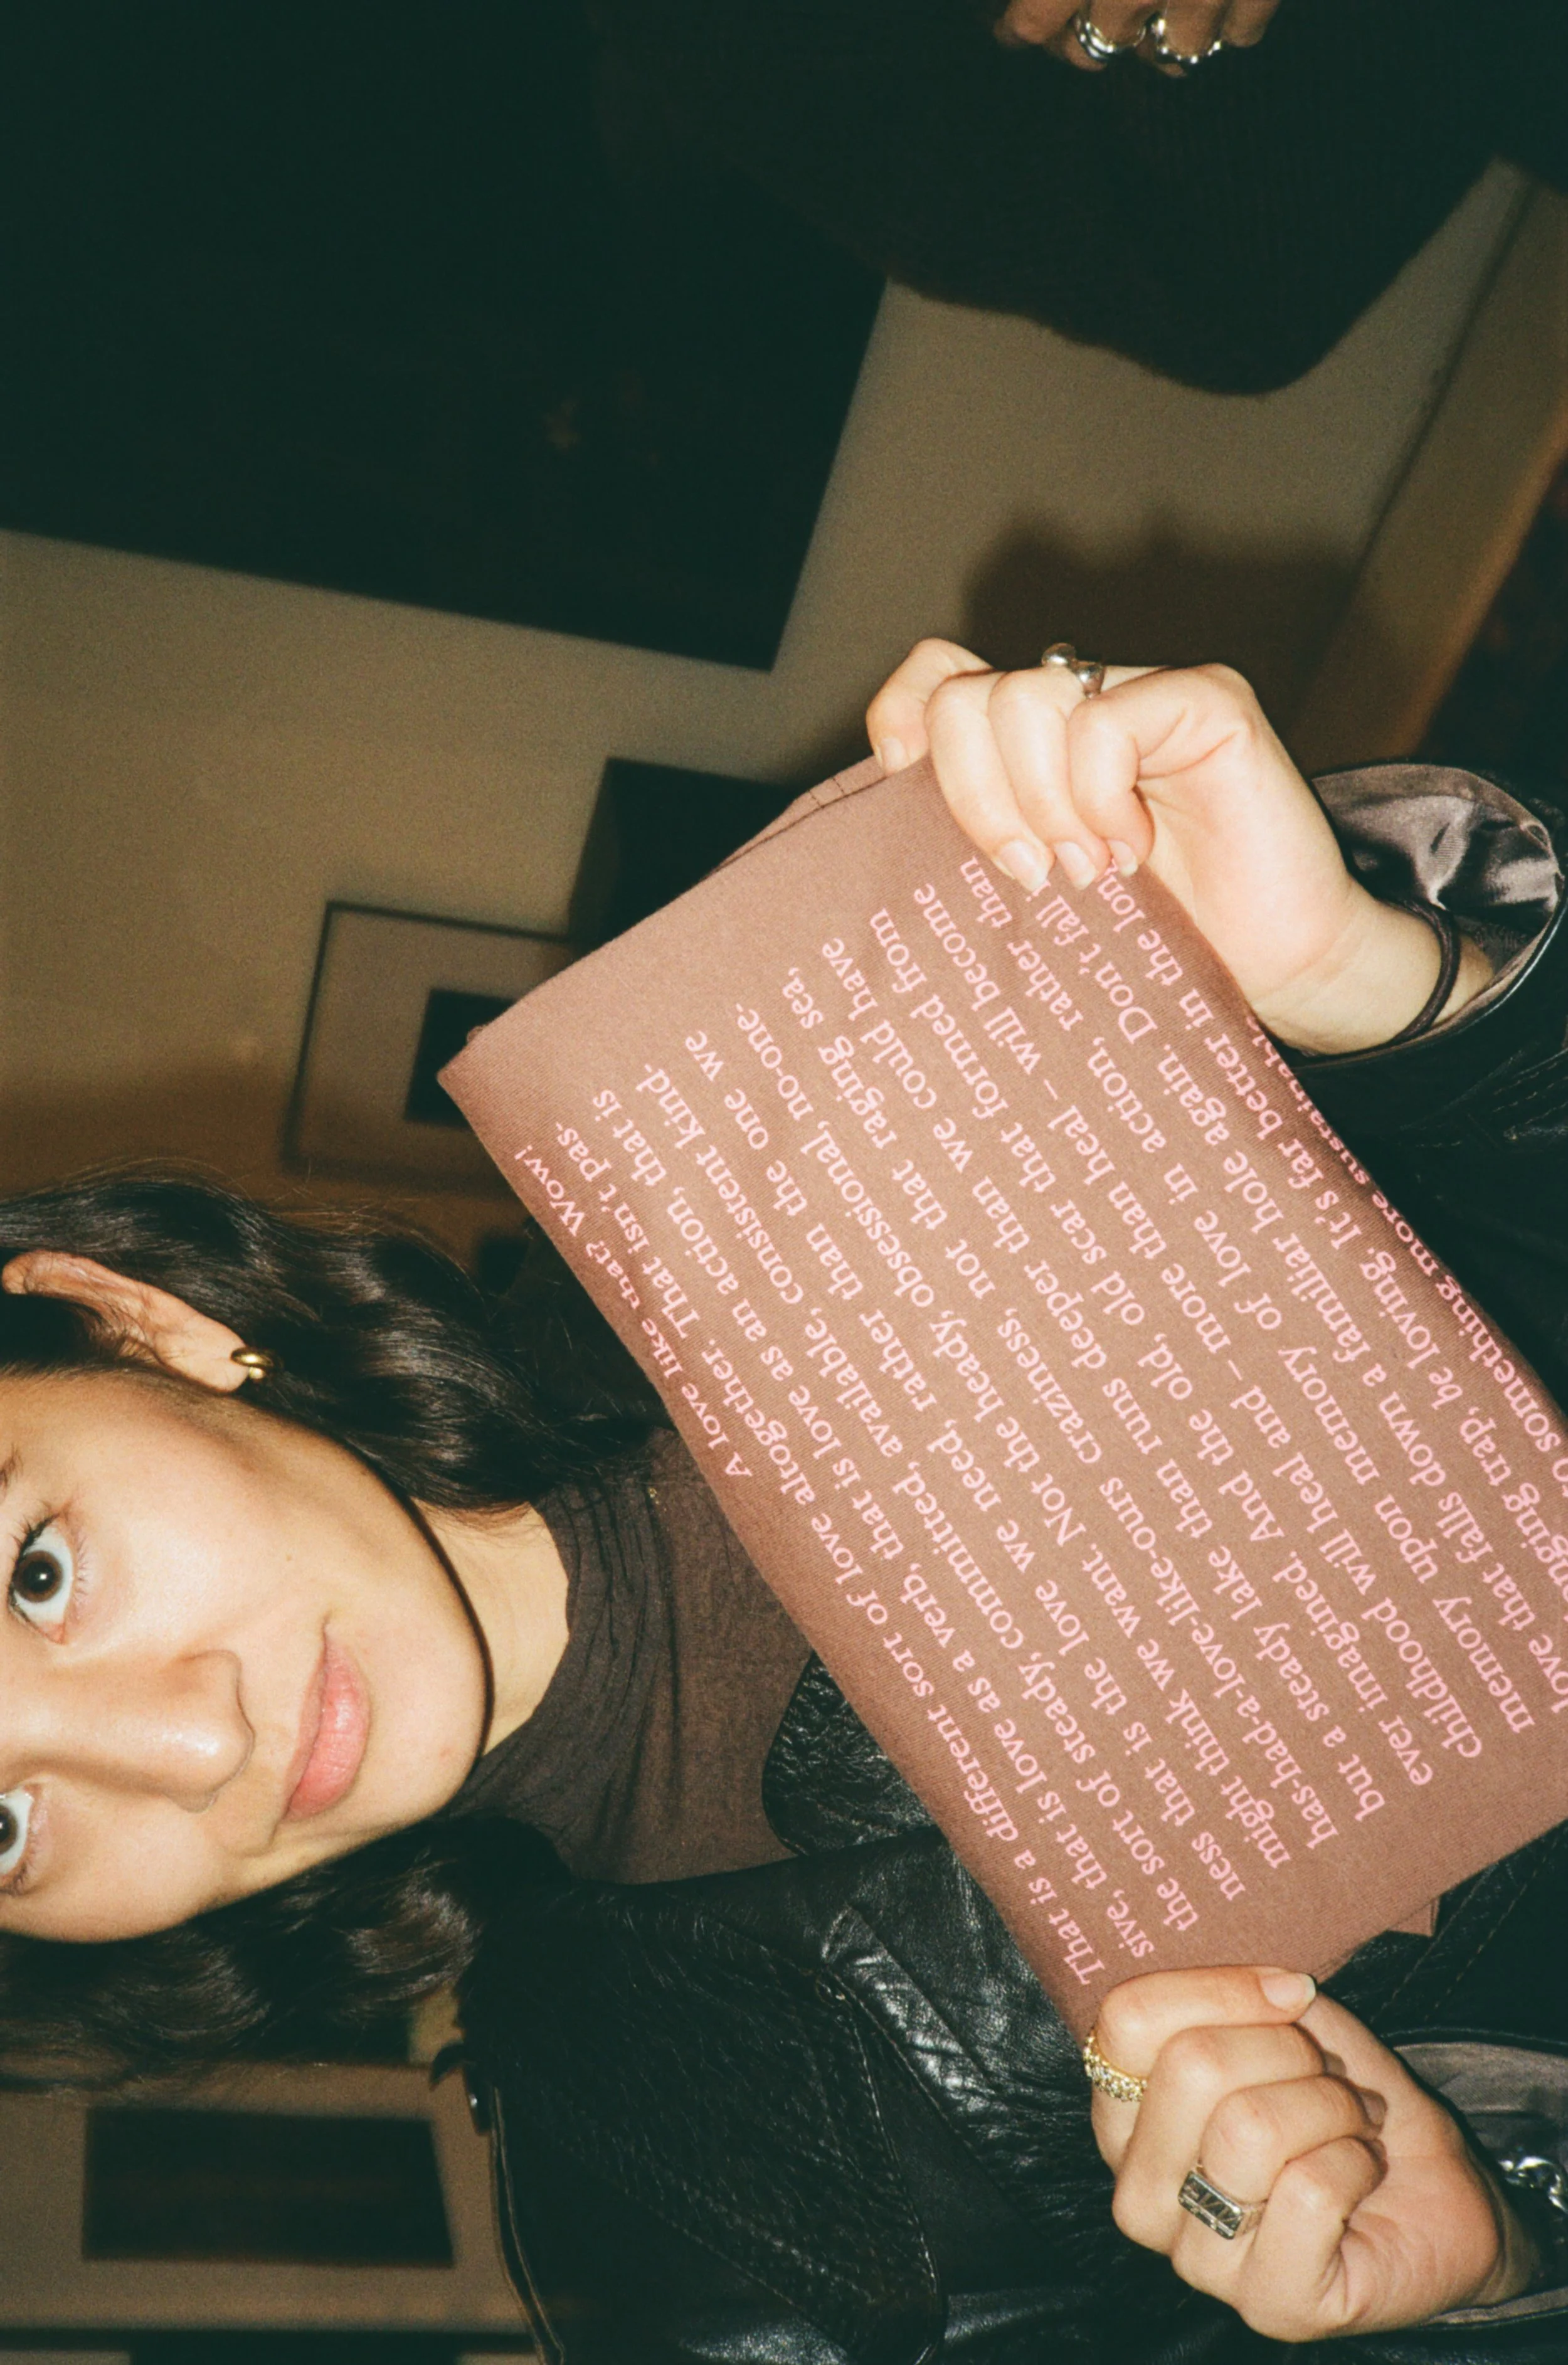 A love like that? Wow!
That is a different sort of love altogether. That isn't pas-
sive, that is love as a verb, that is love as an action, that is
the sort of steady, committed, available, consistent kind-
ness that is the love we need, rather than the one we
might think we want. Not the heady, obsessional, no-one-
has-had-a-love-like-ours craziness, not that raging sea,
but a steady lake than runs deeper than we could have
ever imagined. And the old, old scar that formed from
childhood will heal and – more than heal – will become
memory upon memory of love in action, rather than
love that falls down a familiar hole again. Don't fall
trap, be loving. It's far better in the long
something more sustainable